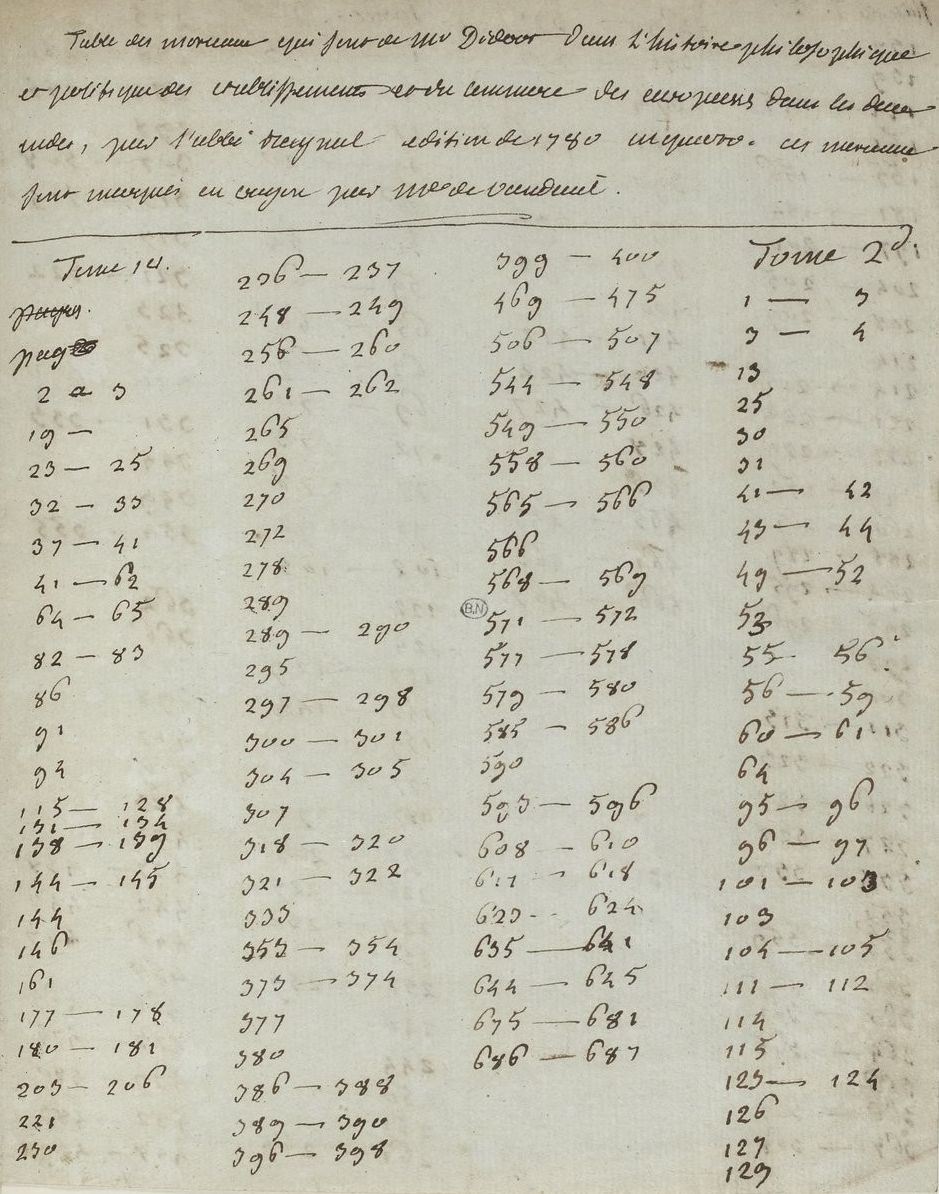 Table des morceaux qui sont de Mr Diderot dans l'histoire philosophique
et politique des etablissements et du commerce des europeens dans les deux
indes, par l'abbé Raynal edition de 1780 inquarto. ces morceaux
sont marqués en crayon par Mde de Vandeuil.
Tome 1er.
pages.
pages
2 a 3
19 —
23 — 25
32 — 33
37 — 41
41 — 62
64 — 65
82 — 83
86
91
94
115 — 128
131 — 134
138 — 139
144 — 145
144
146
161
177 — 178
180 — 181
203 — 206
221
230
236 — 237
248 — 249
256 — 260
261 — 262
265
269
270
272
278
289
289 — 290
295
297 — 298
300 — 301
304 — 305
307
318 — 320
321 — 322
333
353 — 354
373 — 374
377
380
386 — 388
389 — 390
396 — 398
399 — 400
469 — 475
506 — 507
544 — 548
549 — 550
558 — 560
565 — 566
566
568 — 569
B.N
571 — 572
577 — 578
579 — 580
585 — 586
590
593 — 596
608 — 610
617 — 618
623 -- 624
635 — 641
644 — 645
675 — 681
686 — 687
Tome 2d.
1 — 3
3 — 4
13
25
30
31
41 — 42
43 — 44
49 — 52
53
55 - 56
56 — 59
60 — 61
64
95 — 96
96 — 97
101 — 103
103
104 — 105
111 — 112
114
115
123 — 124
126
127
129